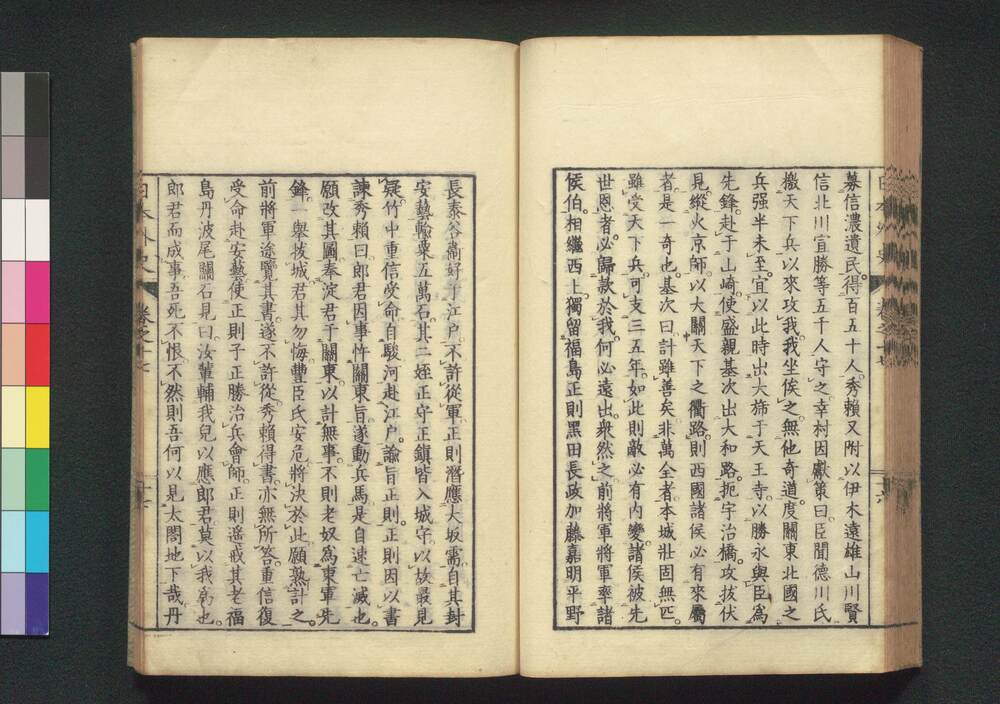 募信濃遺民。得百五十人。秀賴又附以伊木遠雄山川賢
信北川宣勝等五千人守之。幸村因獻策曰。臣聞德川氏
搬天下兵以來攻我。我坐俟之。無他奇道。度關東北國之
兵强半未至。宜以此時出大旆于天王寺。以勝永與臣為
先鋒。赴于山崎。使盛親基次出大和路。扼宇治橋。攻拔伏
見。縱火京師。以大關天下之衢路。則西國諸侯必有來屬
者。是一奇也。基次曰。計雖善矣。非萬全者。本城壯固無匹。
雖受天下兵。可支三五年。如此則敵必有內變。諸侯被先
世恩者。必歸款於我。何必遠出。衆然之。前將軍將軍率諸
侯伯。相繼西上。獨留福島正則黑田長政加藤嘉明平野
長泰谷衞好于江戶。不許從軍。正則潛應大坂需。自其封
安藝輸粟五萬石。其二姪正守正鎮皆入城守。以故最見
疑。竹中重信受命自駿河赴江戶。諭旨正則。正則因以書
諫秀賴曰。郎君因事忤關東旨。遂動兵馬。是自速亡滅也。
願改其圖。奉淀君于關東。以計無事。不則老奴爲東軍先
鋒。一舉拔城。君其勿悔。豐臣氏安危。將決於此。願熟計之。
前將軍途覽其書。遂不許從。秀賴得書。亦無所答。重信復
受命赴安藝。使正則子正勝治兵會師。正則遙戒其老福
島丹波尾關石見曰。汝輩輔我兒以應郎君。莫以我爲也。
郎君而成事。吾死不恨。不然則吾何以見太閤地下哉。丹